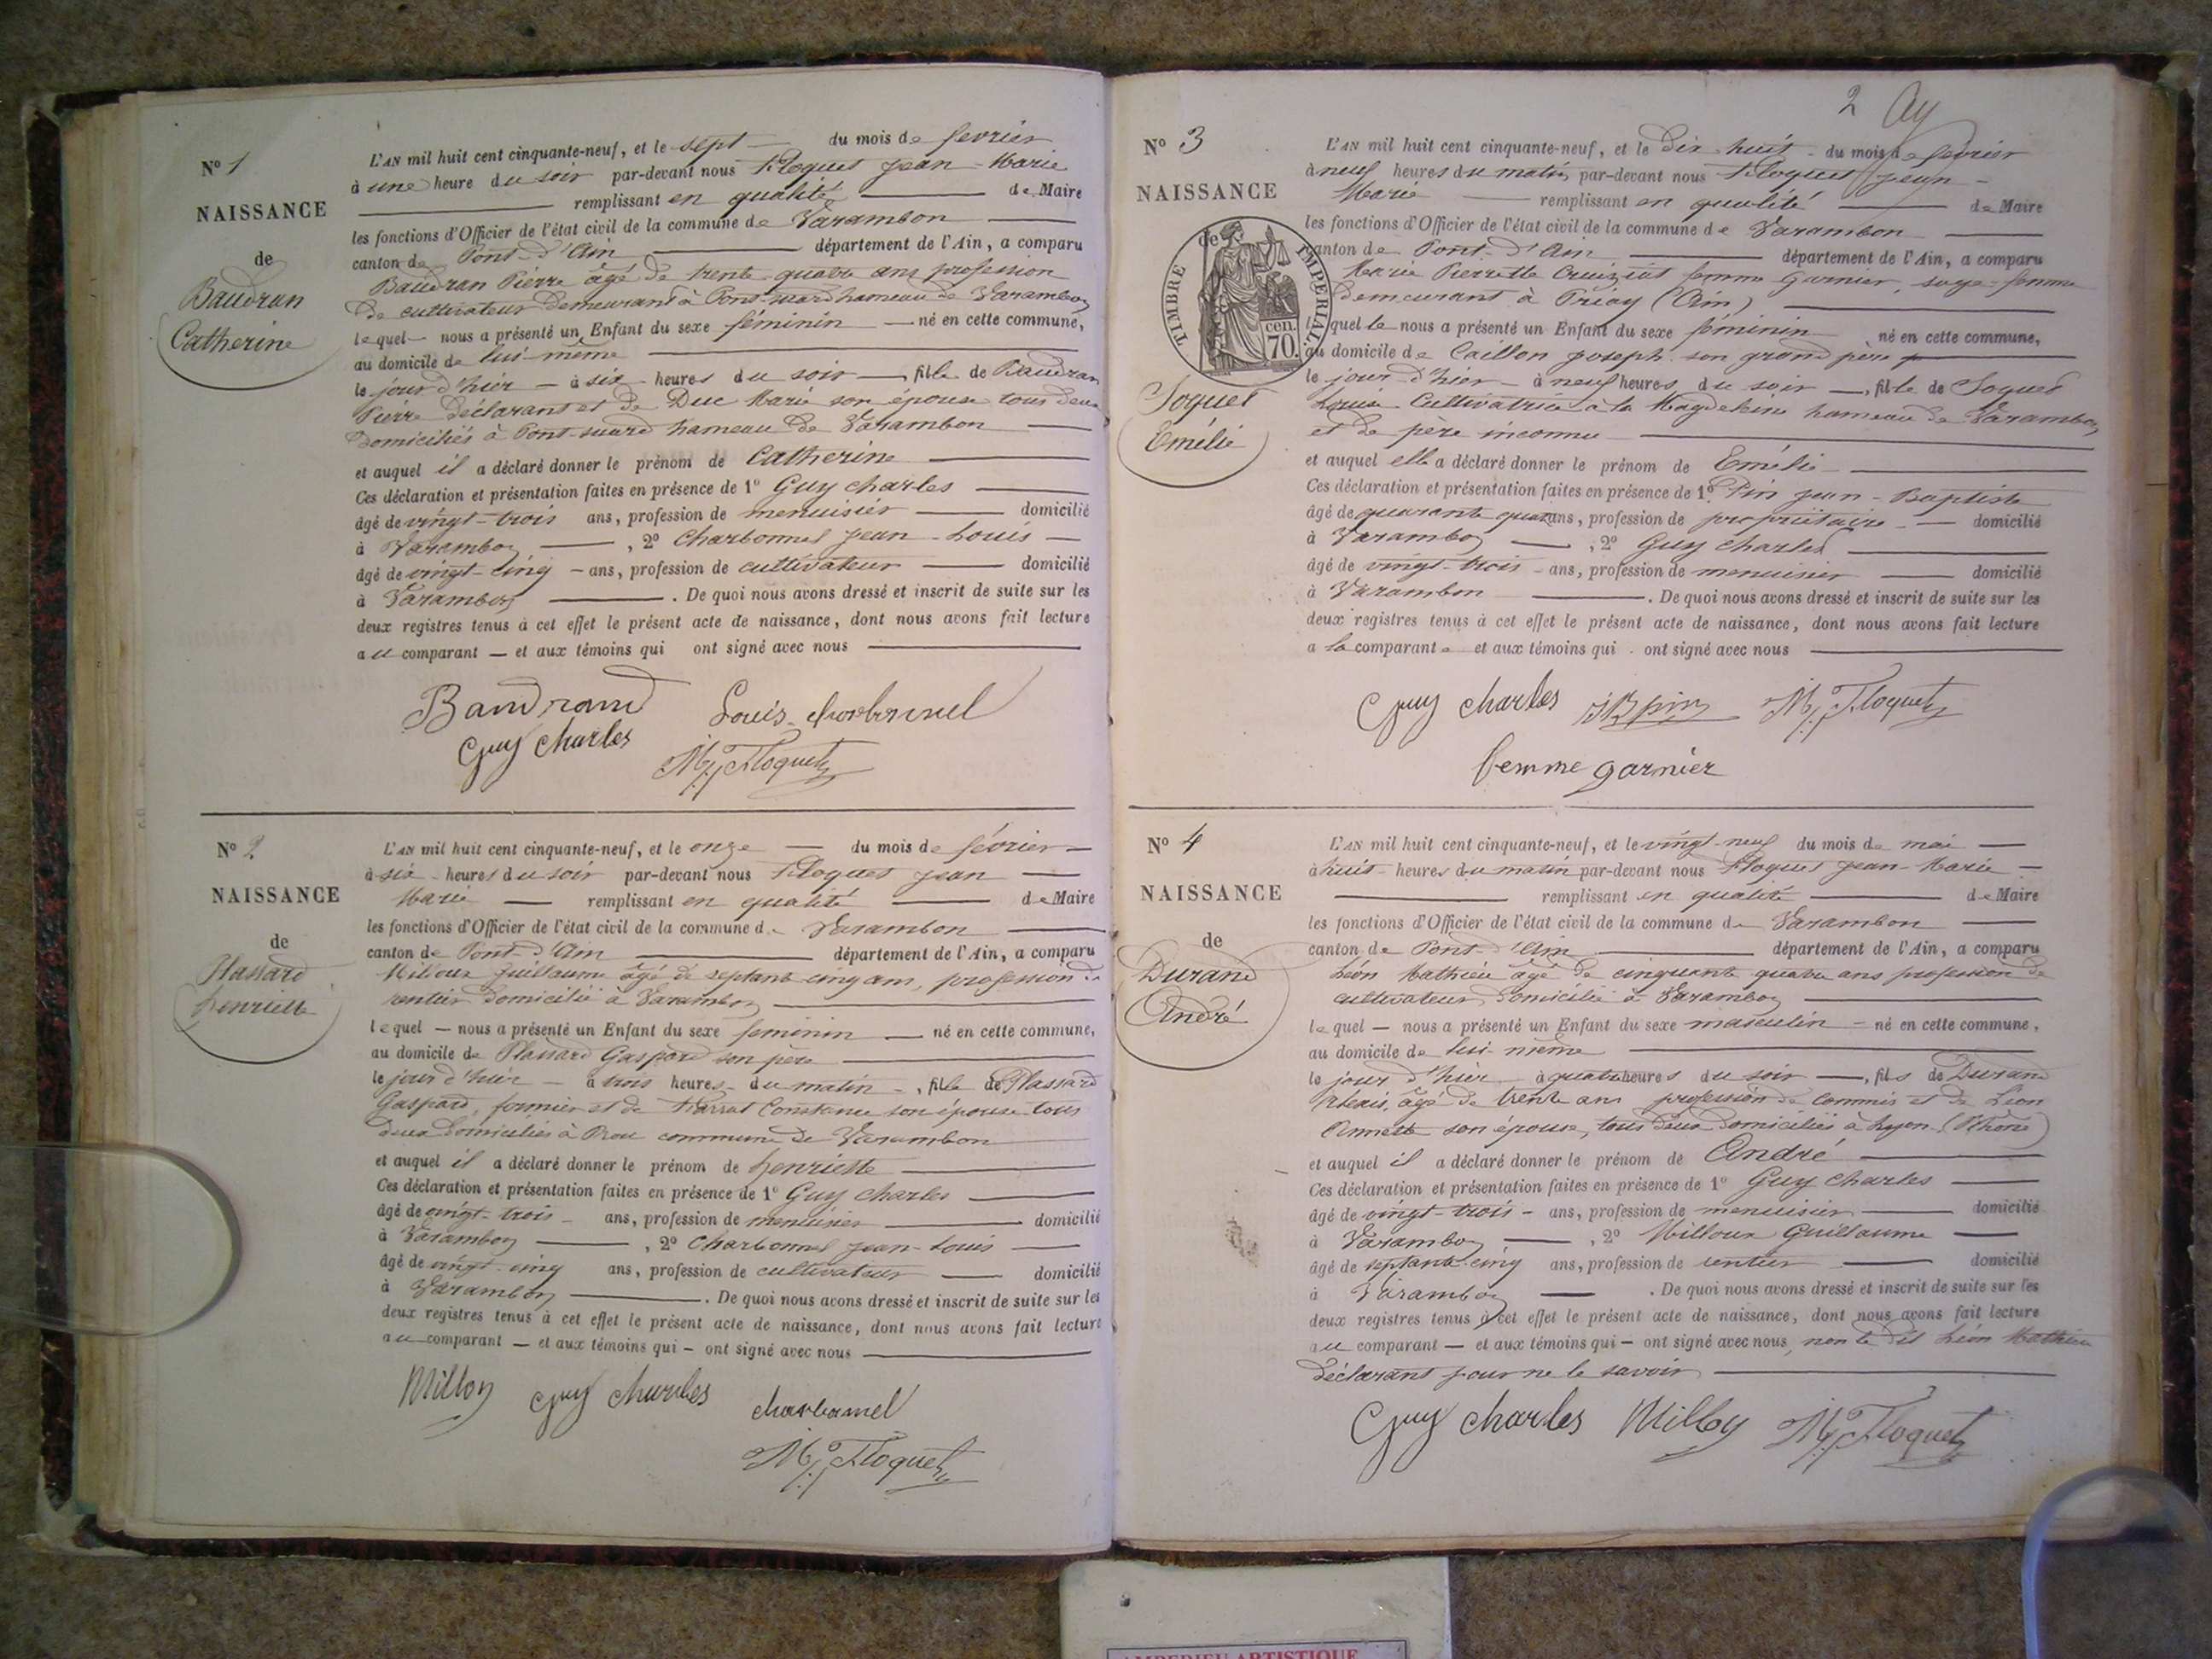 N° 1
NAISSANCE
de
Baudran
Catherine
L'AN mil huit cent cinquante-neuf, et le sept du mois de fevrier
à une heure du soir par-devant nous Floquet Jean-Marie
remplissant en qualité de Maire
les fonctions d'Officier de l'état civil de la commune de Varambon
canton de Pont-d'Ain département de l'Ain, a comparu
Baudran Pierre âgé de trente-quatre ans profession
de cultivateur demeurant à Pont-suard hameau de Varambon
lequel nous a présenté un Enfant du sexe féminin né en cette commune,
au domicile de lui-même
le jour d'hier à six heures du soir, fille de Baudran
Pierre déclarant et de Duc Marie son épouse tous deux
domiciliés à Pont-suard hameau de Varambon
et auquel il a déclaré donner le prénom de Catherine
Ces déclaration et présentation faites en présence de 1° Guy Charles
âgé de vingt-trois ans, profession de menuisier domicilié
à Varambon, 2° Charbonnel Jean-Louis
âgé de vingt-cinq ans, profession de cultivateur domicilié
à Varambon. De quoi nous avons dressé et inscrit de suite sur les
deux registres tenus à cet effet le présent acte de naissance, dont nous avons fait lecture
au comparant et aux témoins qui ont signé avec nous
Baudrand Louis charbonnel
Guy Charles
M. J. Floquet
N° 2
NAISSANCE
de
Plassard
henriette
L'AN mil huit cent cinquante-neuf, et le onze du mois de février
à six heures du soir par-devant nous Floquet Jean
Marie remplissant en qualité de Maire
les fonctions d'Officier de l'état civil de la commune de Varambon
canton de Pont-d'Ain département de l'Ain, a comparu
Milloux Guillaume âgé de septante cinq ans, profession de
rentier domicilié à Varambon
lequel nous a présenté un Enfant du sexe feminin né en cette commune,
au domicile de Plassard Gaspard son père
le jour d'hier à trois heures du matin, fille de Plassard
Gaspard, fermier et de Constance son épouse tous
deux domiciliés à Prou commune de Varambon
et auquel il a déclaré donner le prénom de henriette
Ces déclaration et présentation faites en présence de 1° Guy Charles
âgé de vingt-trois ans, profession de menuisier domicilié
à Varambon, 2° Charbonnel Jean-Louis
âgé de vingt-cinq ans, profession de cultivateur domicilié
à Varambon. De quoi nous avons dressé et inscrit de suite sur les
deux registres tenus à cet effet le présent acte de naissance, dont nous avons fait lecture
au comparant et aux témoins qui ont signé avec nous
Milloy Guy Charles charbonnel
M. J. Floquet
2
N° 3
NAISSANCE
de
TIMBRE IMPERIAL
70 cen.
Soquet
Emélie
L'AN mil huit cent cinquante-neuf, et le dix-huit du mois de fevrier
à neuf heures du matin par-devant nous Floquet Jean-
Marie remplissant en qualité de Maire
les fonctions d'Officier de l'état civil de la commune de Varambon
canton de Pont-d'Ain département de l'Ain, a comparu
Marie Pierrette Cruiziat femme Garnier, sage-femme
demeurant à Priay (Ain)
laquelle nous a présenté un Enfant du sexe féminin né en cette commune,
au domicile de Caillon Joseph son grand père
le jour d'hier à neuf heures du soir, fille de Soquet
Louise Cultivatrice à la Magdeleine hameau de Varambon
et de pere inconnu
et auquel elle a déclaré donner le prénom de Emélie
Ces déclaration et présentation faites en présence de 1° Pin Jean-Baptiste
âgé de quarante quatre ans, profession de propriétaire domicilié
à Varambon, 2° Guy Charles
âgé de vingt-trois ans, profession de menuisier domicilié
à Varambon. De quoi nous avons dressé et inscrit de suite sur les
deux registres tenus à cet effet le présent acte de naissance, dont nous avons fait lecture
a la comparante et aux témoins qui ont signé avec nous
Guy Charles JB pin M. J. Floquet
femme garnier
N° 4
NAISSANCE
de
Durand
André
L'AN mil huit cent cinquante-neuf, et le vingt-neuf du mois de mai
à huit heures du matin par-devant nous Floquet Jean-Marie
remplissant en qualité de Maire
les fonctions d'Officier de l'état civil de la commune de Varambon
canton de Pont-d'Ain département de l'Ain, a comparu
Léon Mathieu âgé de cinquante quatre ans profession de
cultivateur domicilié à Varambon
lequel nous a présenté un Enfant du sexe masculin né en cette commune,
au domicile de lui-même
le jour d'hier à quatre heures du soir, fils de Durand
Alexis, âgé de trente ans profession de commis et de Léon
Annette son épouse, tous deux domiciliés à Lyon (Rhône)
et auquel il a déclaré donner le prénom de André
Ces déclaration et présentation faites en présence de 1° Guy Charles
âgé de vingt-trois ans, profession de menuisier domicilié
à Varambon, 2° Milloux Guillaume
âgé de septante-cinq ans, profession de rentier domicilié
à Varambon. De quoi nous avons dressé et inscrit de suite sur les
deux registres tenus à cet effet le présent acte de naissance, dont nous avons fait lecture
au comparant et aux témoins qui ont signé avec nous, non le dit Léon Mathieu
déclarant pour ne le savoir
Guy Charles Milloy M. J. Floquet